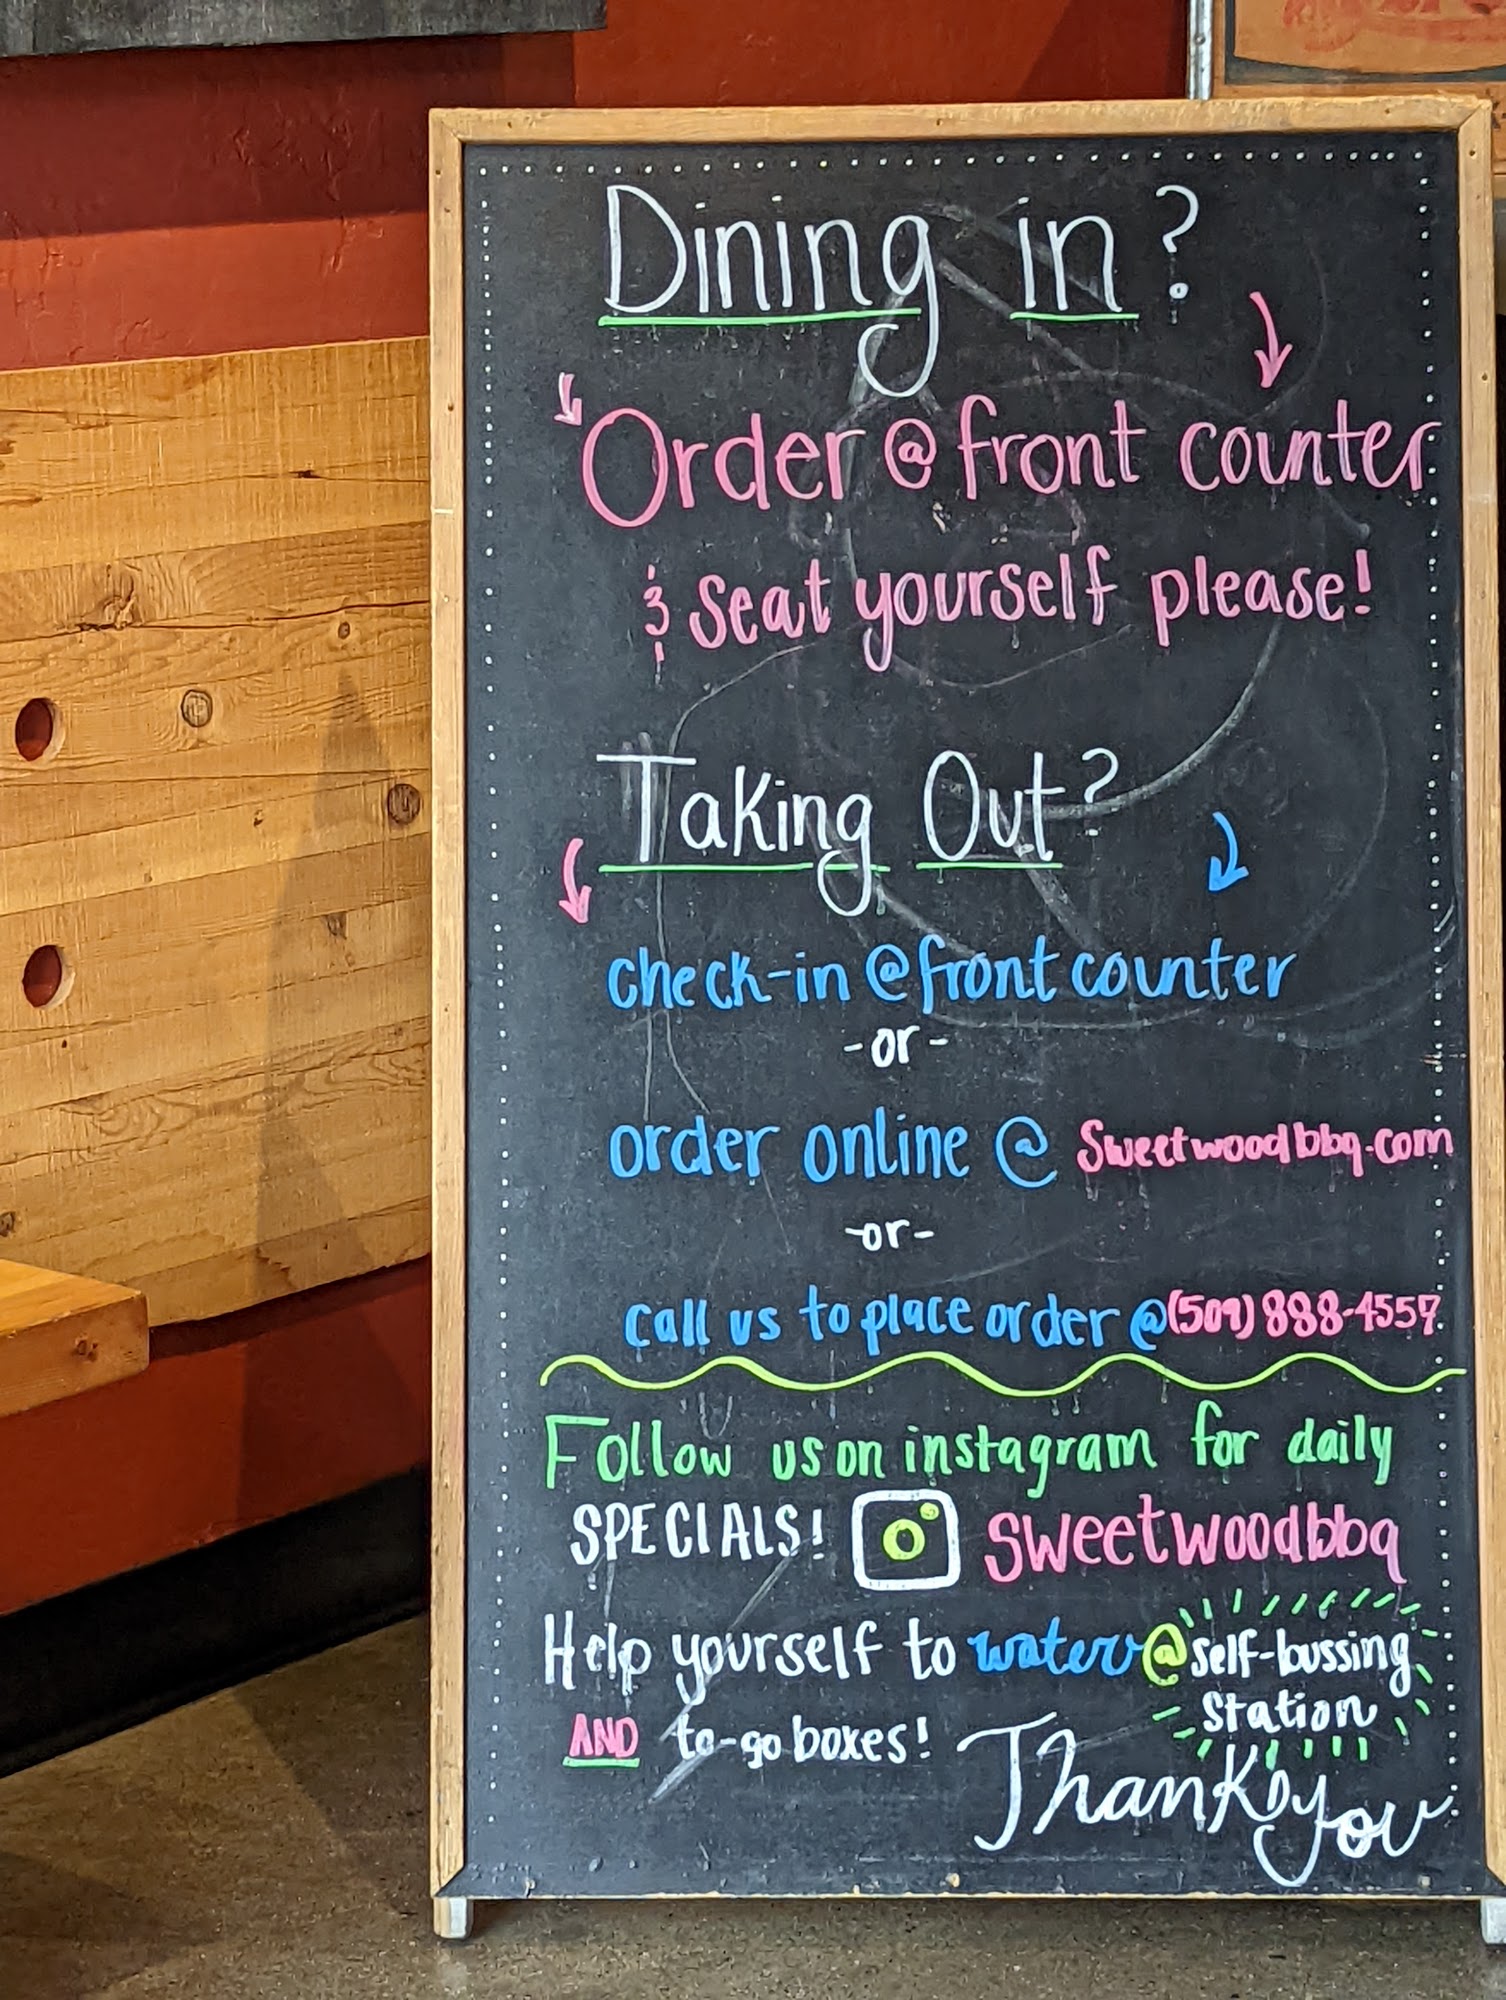 Dining in?
Order @ front counter
& seat yourself please!
Taking Out?
check-in @ front counter
-or-
order online @ sweetwoodbbq.com
-or-
call us to place order @ (509) 888-4557
Follow us on instagram for daily
SPECIALS! sweetwoodbbq
Help yourself to water @ self-bussing
station
AND to-go boxes!
Thank you